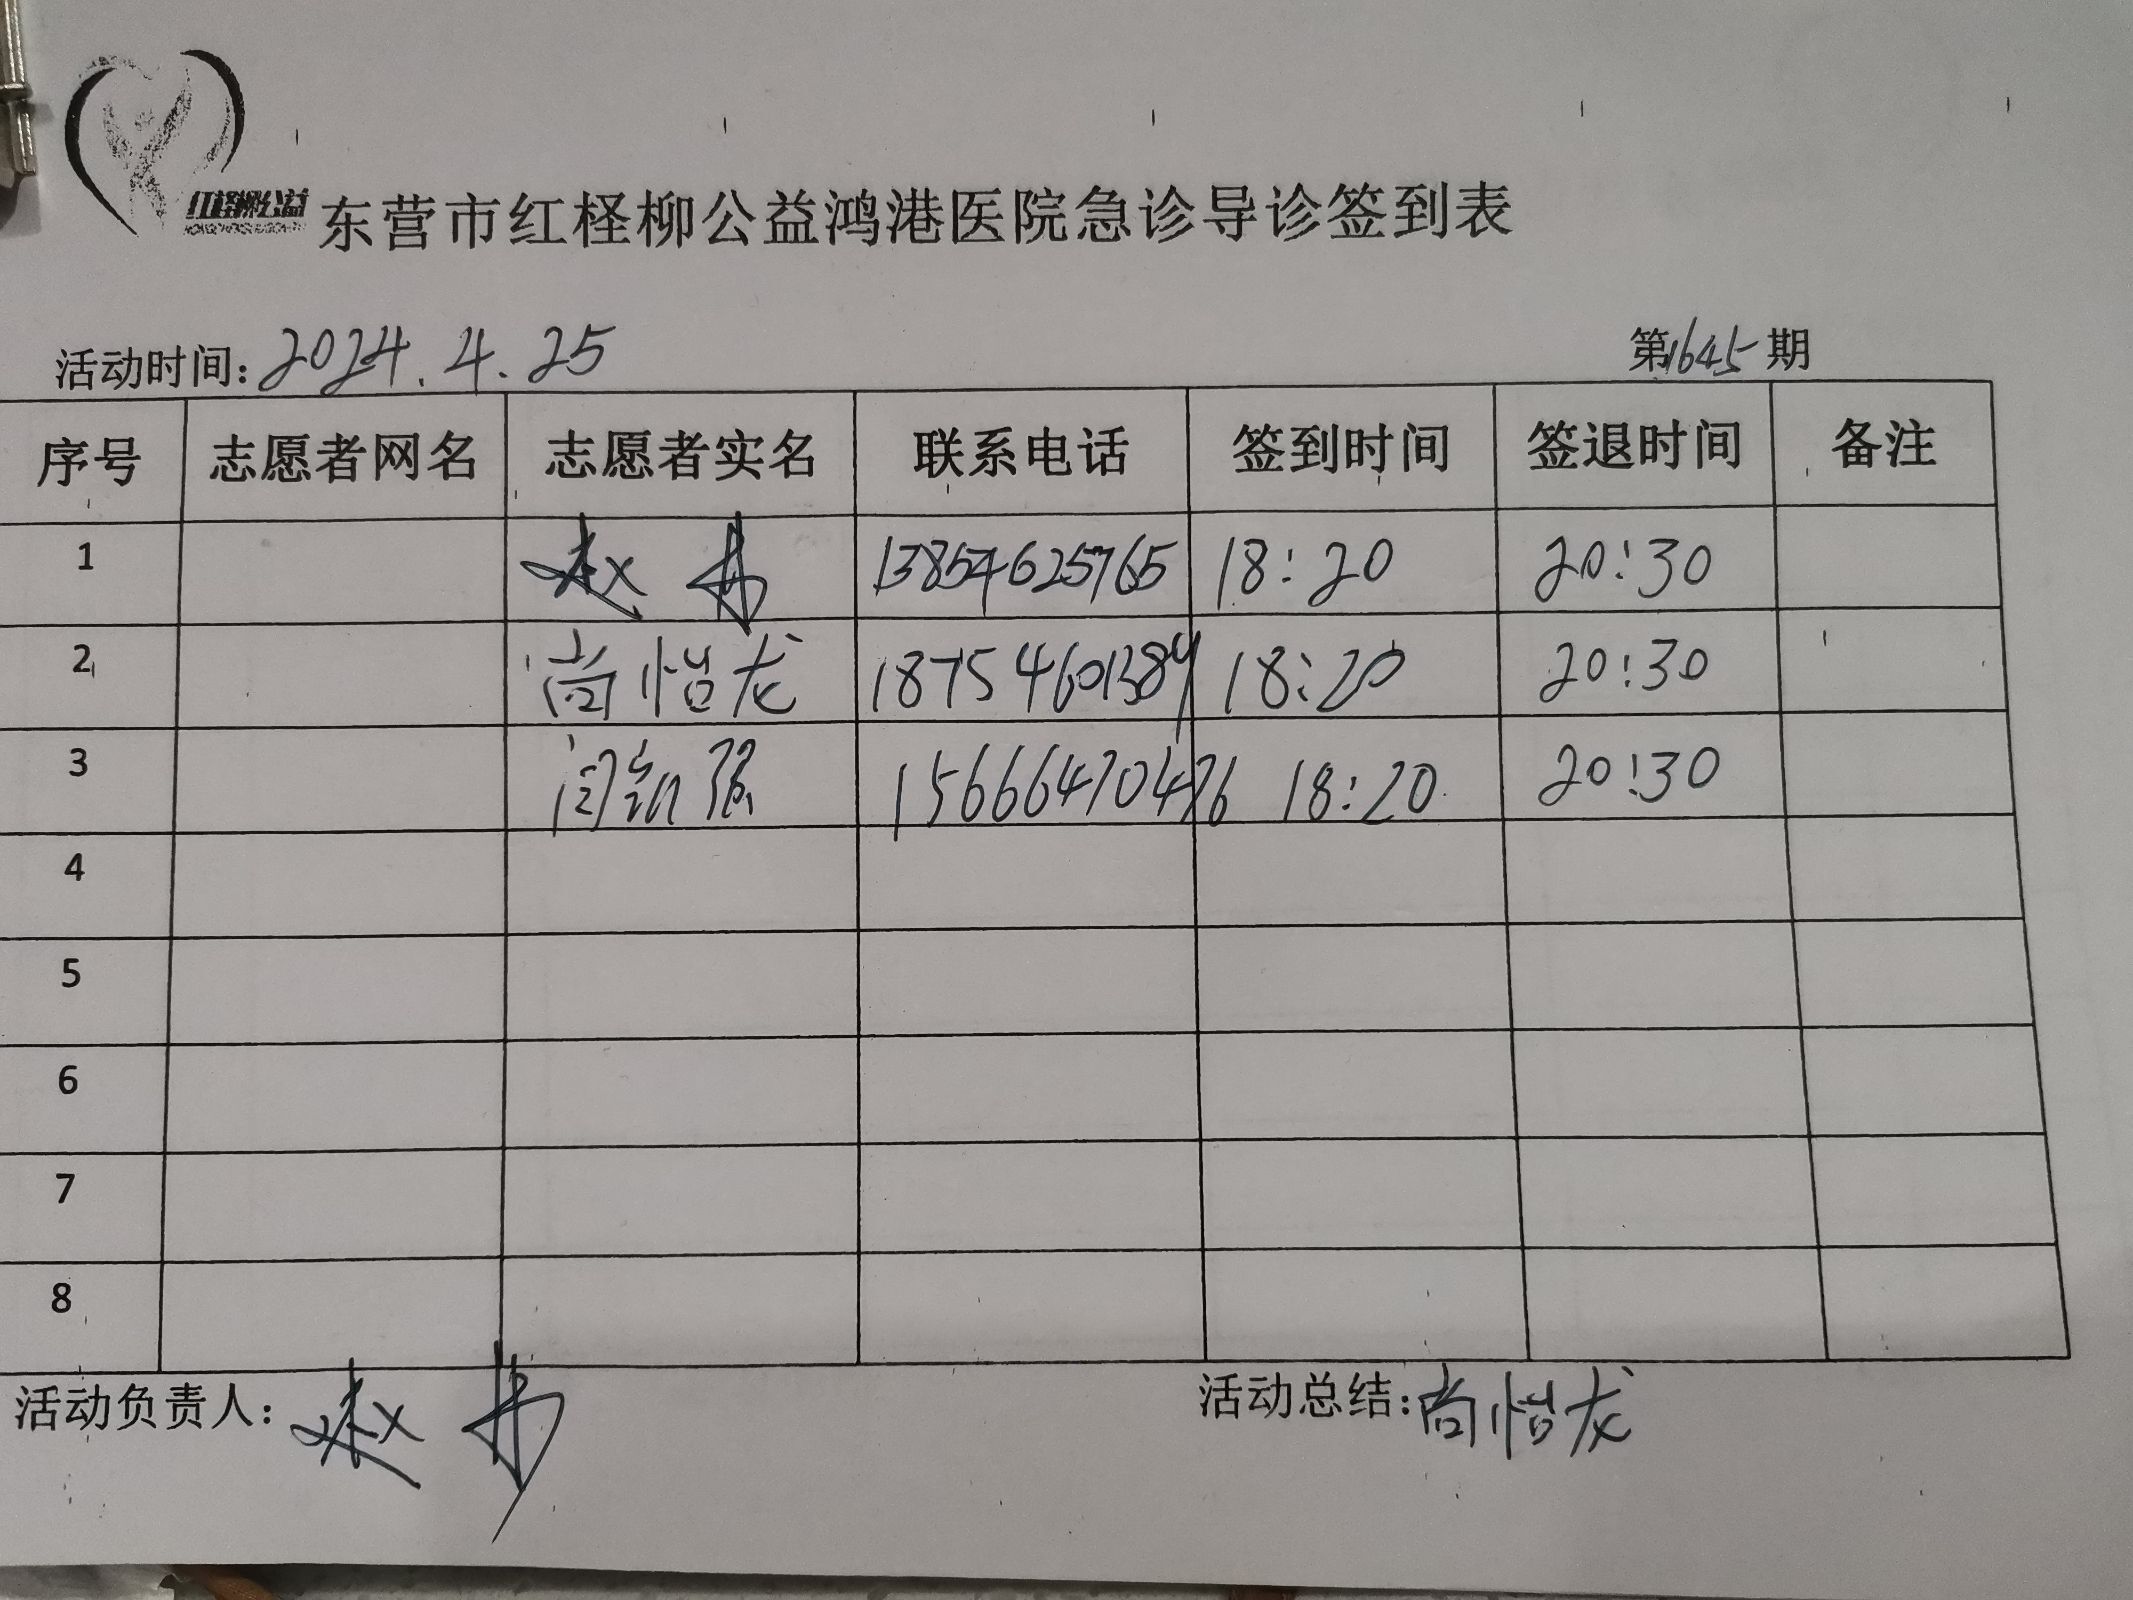 红柽柳公益
东营市红柽柳公益鸿港医院急诊导诊签到表
活动时间: 2024.4.25 第1645期
序号 志愿者网名 志愿者实名 联系电话 签到时间 签退时间 备注
1 赵 13854625765 18:20 20:30
2 尚怡龙 18754601389 18:20 20:30
3 15666470476 18:20 20:30
4
5
6
7
8
活动负责人: 赵 活动总结: 尚怡龙